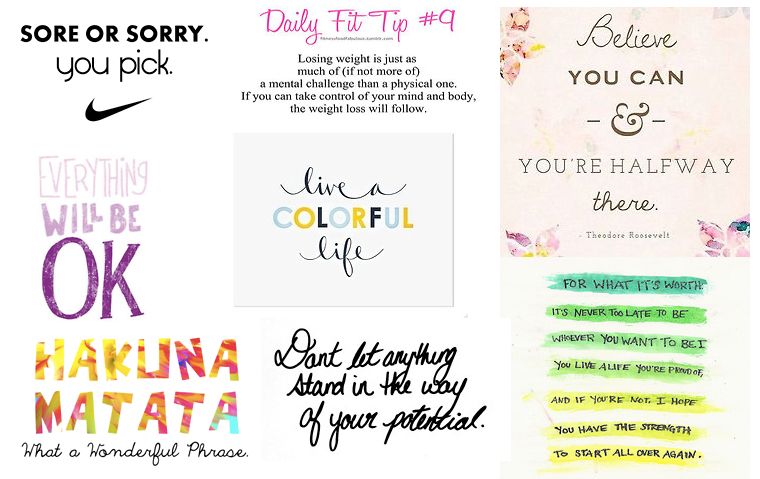 SORE OR SORRY.
you pick.
Daily Fit Tip #9
fitnessfoodfabulous.tumblr.com
Losing weight is just as
much of (if not more of)
a mental challenge than a physical one.
If you can take control of your mind and body,
the weight loss will follow.
Believe
YOU CAN
- & -
YOU'RE HALFWAY
there.
- Theodore Roosevelt
EVERYTHING
WILL BE
OK
live a
COLORFUL
life
HAKUNA
MATATA
What a Wonderful Phrase.
Dont let anything
stand in the way
of your potential.
FOR WHAT IT'S WORTH:
IT'S NEVER TOO LATE TO BE
WHOEVER YOU WANT TO BE. I
YOU LIVE A LIFE YOU'RE PROUD OF,
AND IF YOU'RE NOT, I HOPE
YOU HAVE THE STRENGTH
TO START ALL OVER AGAIN.